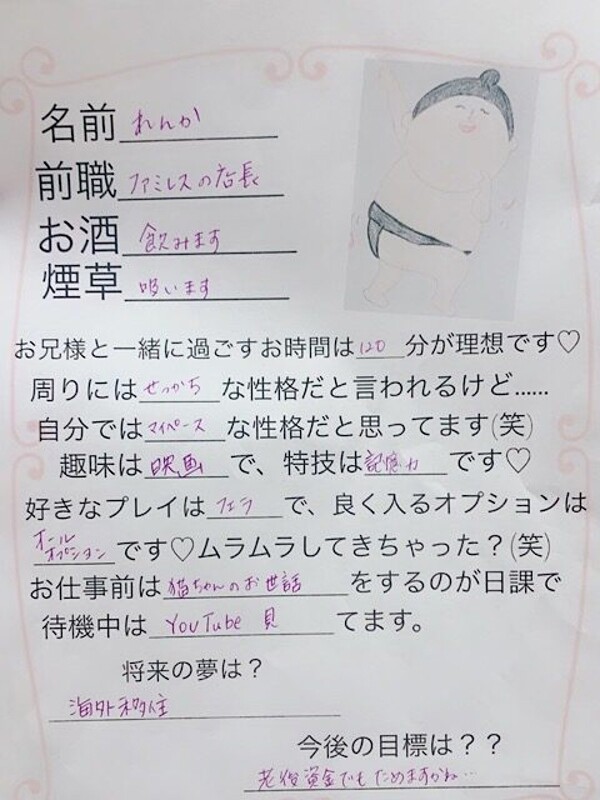 名前 れんか
前職 ファミレスの店長
お酒 飲みます
煙草 吸います
お兄様と一緒に過ごすお時間は120分が理想です♡
周りにはせっかちな性格だと言われるけど……
自分ではマイペースな性格だと思ってます(笑)
趣味は映画で、特技は記憶力です♡
好きなプレイはフェラで、良く入るオプションは
オールオプションです♡ムラムラしてきちゃった？(笑)
お仕事前は猫ちゃんのお世話をするのが日課で
待機中はYouTube 見てます。
将来の夢は？
海外移住
今後の目標は？？
老後資金でもためますかね…